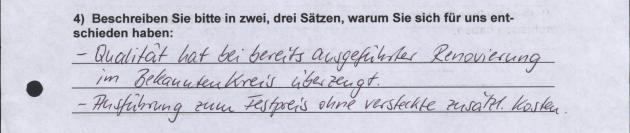 4) Beschreiben Sie bitte in zwei, drei Sätzen, warum Sie sich für uns ent-
schieden haben:
- Qualität hat bei bereits ausgeführter Renovierung
im Bekanntenkreis überzeugt.
- Ausführung zum Festpreis ohne versteckte zusätzl. Kosten.